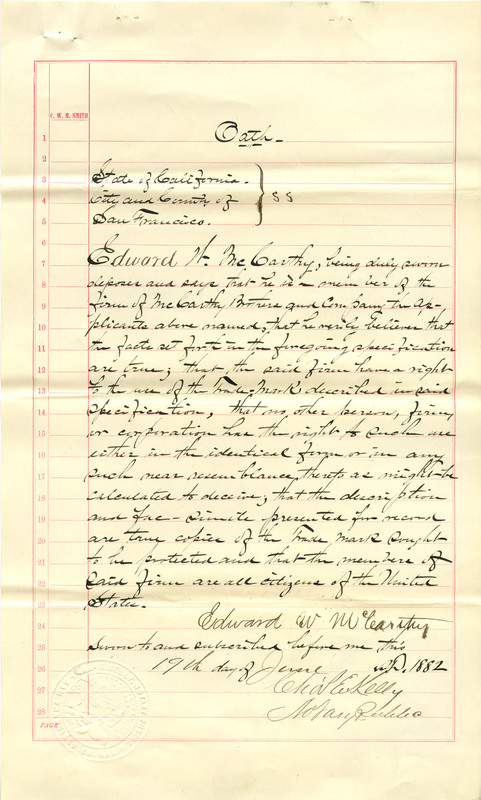 C. W. M. SMITH
Oath.
State of California.
City and County of } SS
San Francisco.
Edward W. McCarthy, being duly sworn
deposes and says that he is a member of the
firm of McCarthy Brothers and Company, the Ap-
plicants above named; that he verily believes that
the facts set forth in the foregoing specification
are true; that the said firm have a right
to the use of the Trade Mark described in said
specification, that no other person, firm,
or corporation has the right to such use
either in the identical form or in any
such near resemblance thereto as might be
calculated to deceive; that the description
and fac-simile presented for record
are true copies of the Trade Mark sought
to be protected and that the members of
said firm are all citizens of the United
States.
Edward W McCarthy
Sworn to and subscribed before me this
19th day of June A.D. 1882
Chas E. Kelly
Notary Public
1
2
3
4
5
6
7
8
9
10
11
12
13
14
15
16
17
18
19
20
21
22
23
24
25
26
27
28
PAGE